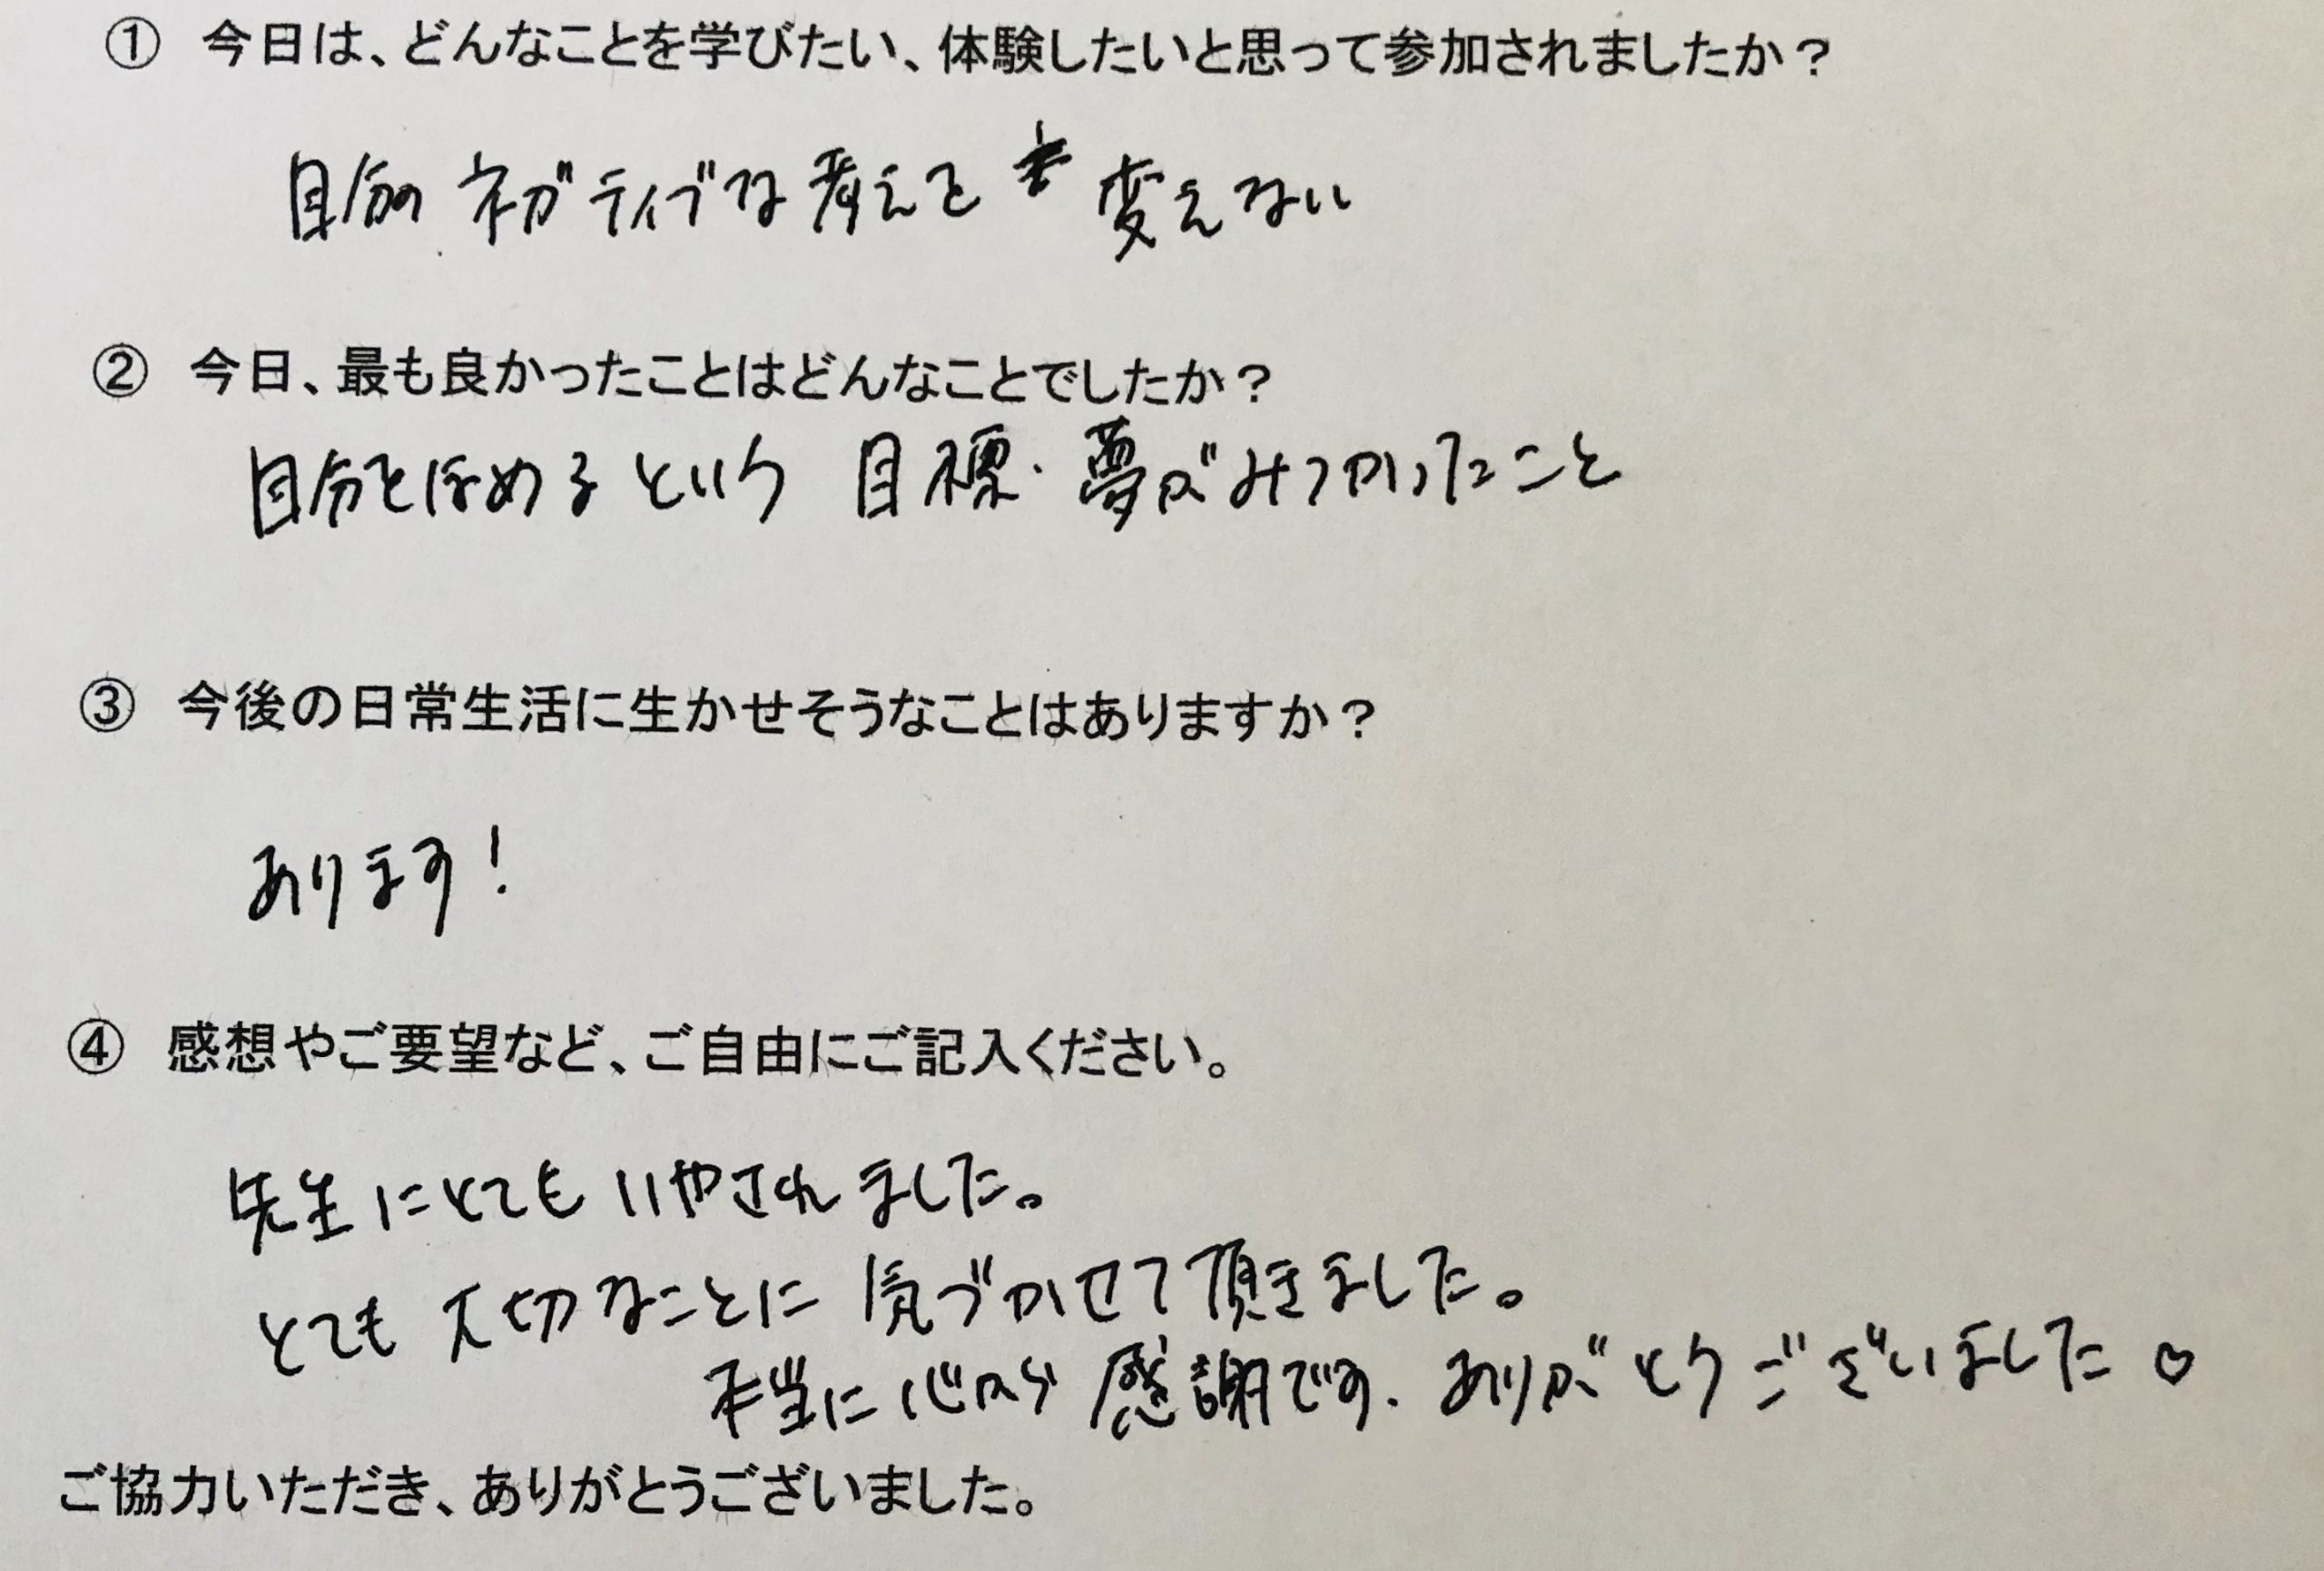 ① 今日は、どんなことを学びたい、体験したいと思って参加されましたか？
自分の ネガティブな考えを 変えない
② 今日、最も良かったことはどんなことでしたか？
自分をほめるという 目標・夢がみつかったこと
③ 今後の日常生活に生かせそうなことはありますか？
あります！
④ 感想やご要望など、ご自由にご記入ください。
先生にとても いやされました。
とても 大切なことに 気づかせて頂きました。
本当に心から 感謝です. ありがとうございました♡
ご協力いただき、ありがとうございました。